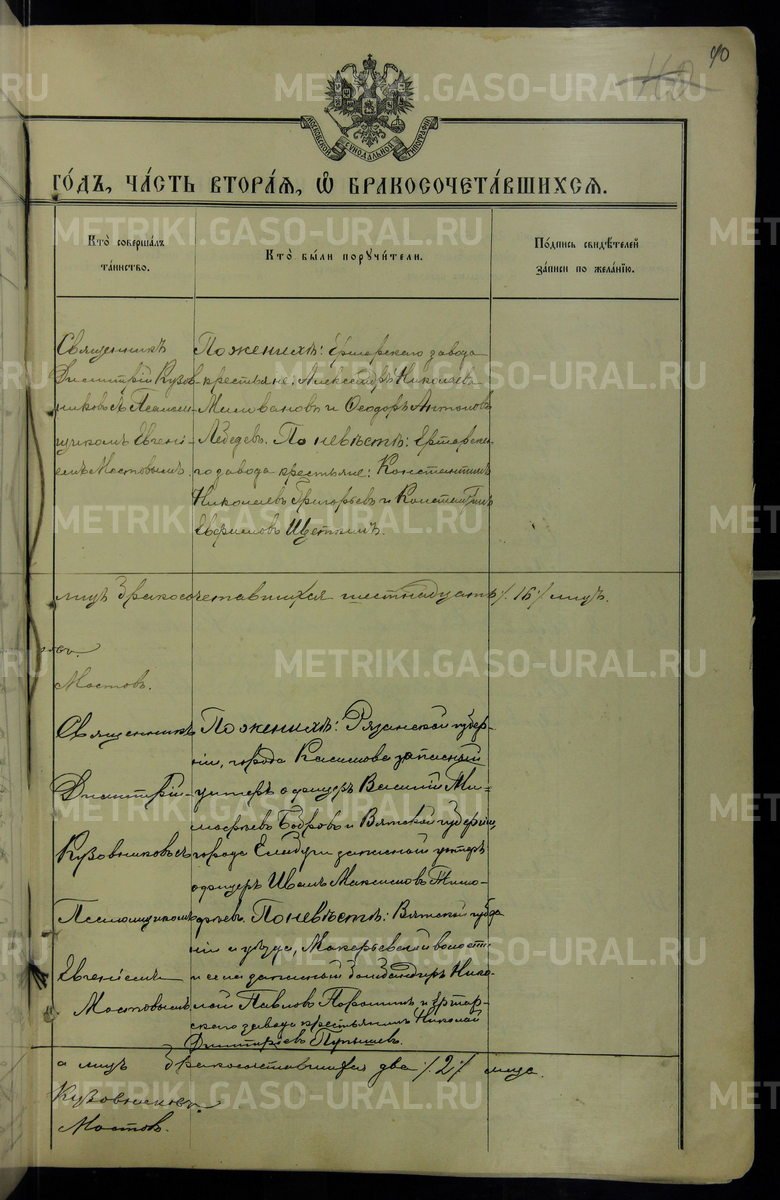 40
МОСКОВСКОЙ СѴНОДАЛЬНОЙ ТИПОГРАФІИ
ГО́ДЪ, ЧА́СТЬ ВТОРА́Я, Ѡ҆ БРАКОСОЧЕТА́ВШИХСЯ.
Кто̀ соверша́лъ
та́инство.
Кто̀ бы́ли поручи́тели.
По́дпись свидѣ́телей
за́писи по жела́нію.
Священникъ
Дмитрій Кузов
никовъ съ Псалом
щикомъ Евгені-
емъ Мостовымъ.
По женихѣ: Ертарскаго завода
крестьяне: Александръ Николаевъ
Миловановъ и Ѳеодоръ Антоновъ
Лебедевъ. По невѣстѣ: Ертарска-
го завода крестьяне: Константинъ
Николаевъ Григорьевъ и Константинъ
Евфимовъ Щеткинъ.
лицъ бракосочетавшихся шестнадцать /. 16 ./ лицъ.
Мостовъ.
Священникъ
Дмитрій
Кузовниковъ съ
Псаломщикомъ
Евгеніемъ
Мостовымъ
По женихѣ: Рязанской губер-
ніи, города Касимова запасный
унтеръ офицеръ Василій Ми-
Бобровъ и Вятской губерніи,
города Елабуги запасной унтеръ
офицеръ Иванъ Максимовъ Тимо-
феевъ. По невѣстѣ: Вятской губер
ніи и уѣзда, Макарьевской волости
и села запасный бомбандиръ Нико-
лай Павловъ Порошинъ и Ертар-
скаго завода крестьянинъ Николай
Дмитріевъ
а лицъ бракосочетавшихся два /. 2 ./ лица.
Кузовниковъ.
Мостовъ.
METRIKI.GASO-URAL.RU